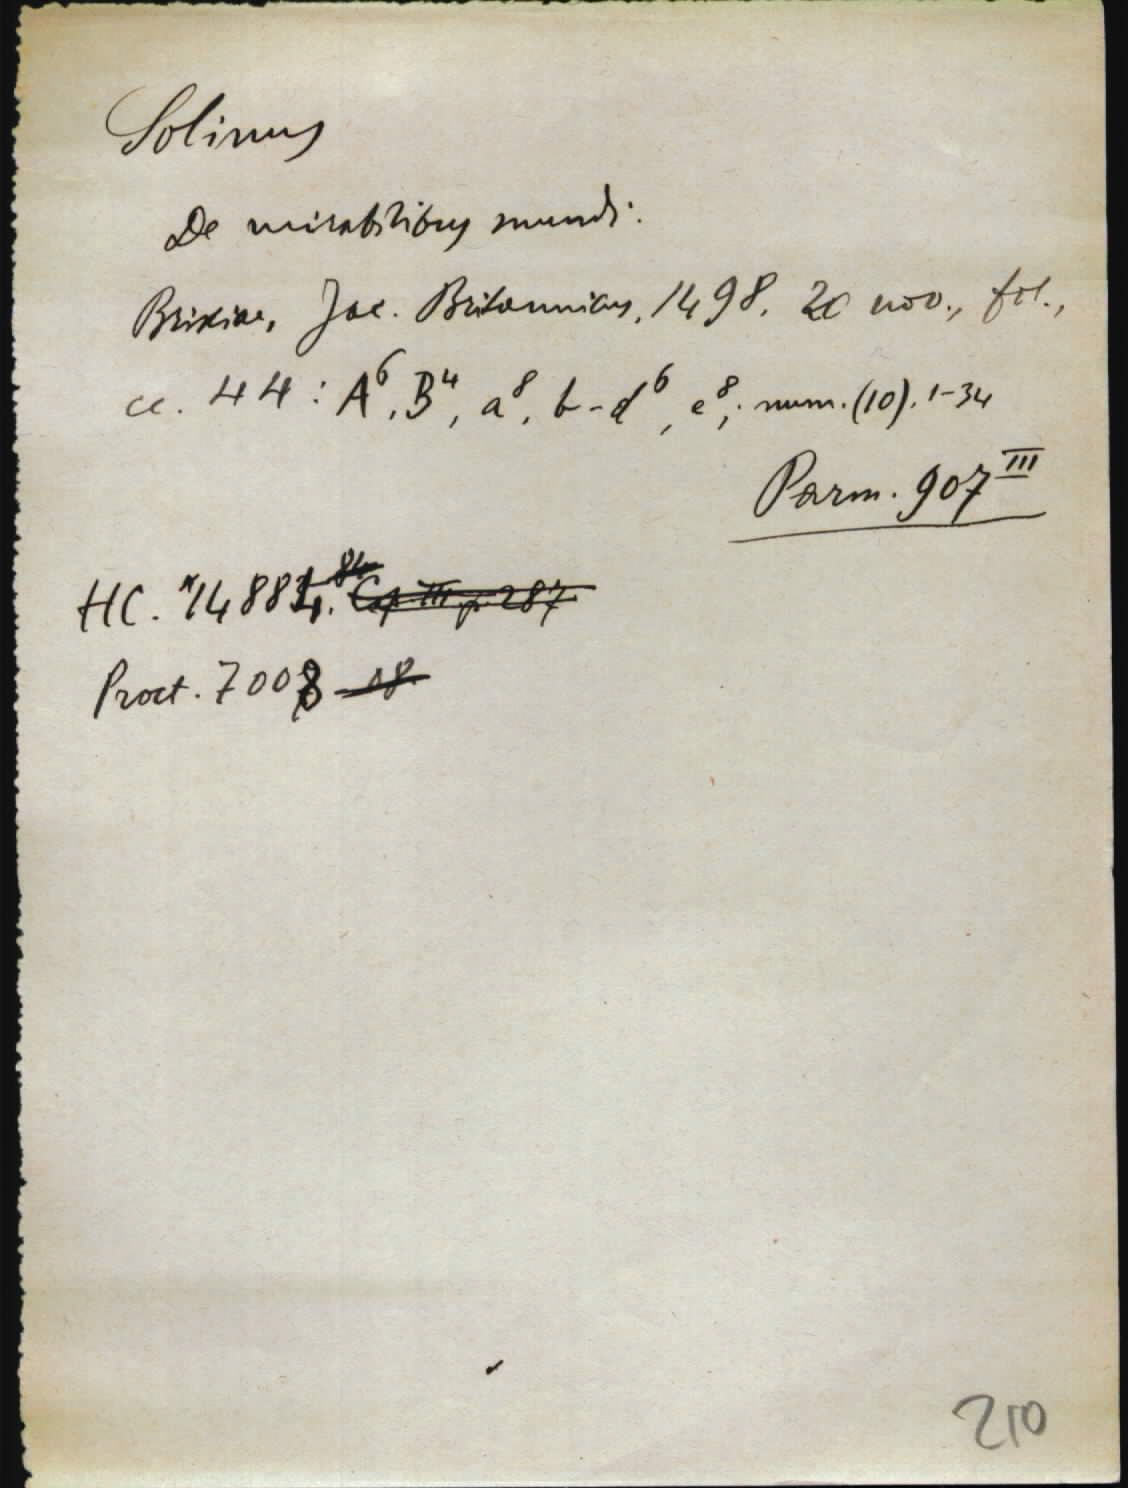 Solinus
De mirabilibus mundi.
Brixiae, Jac. Britannicus, 1498, 20 nov., fol.,
cc. 44: A⁶, B⁴, a⁸, b-d⁶, e⁸; num. (10). 1-34
Parm. 907 III
HC. *14884. 84 Cp. III p. 287
Proct. 7008 08.
210